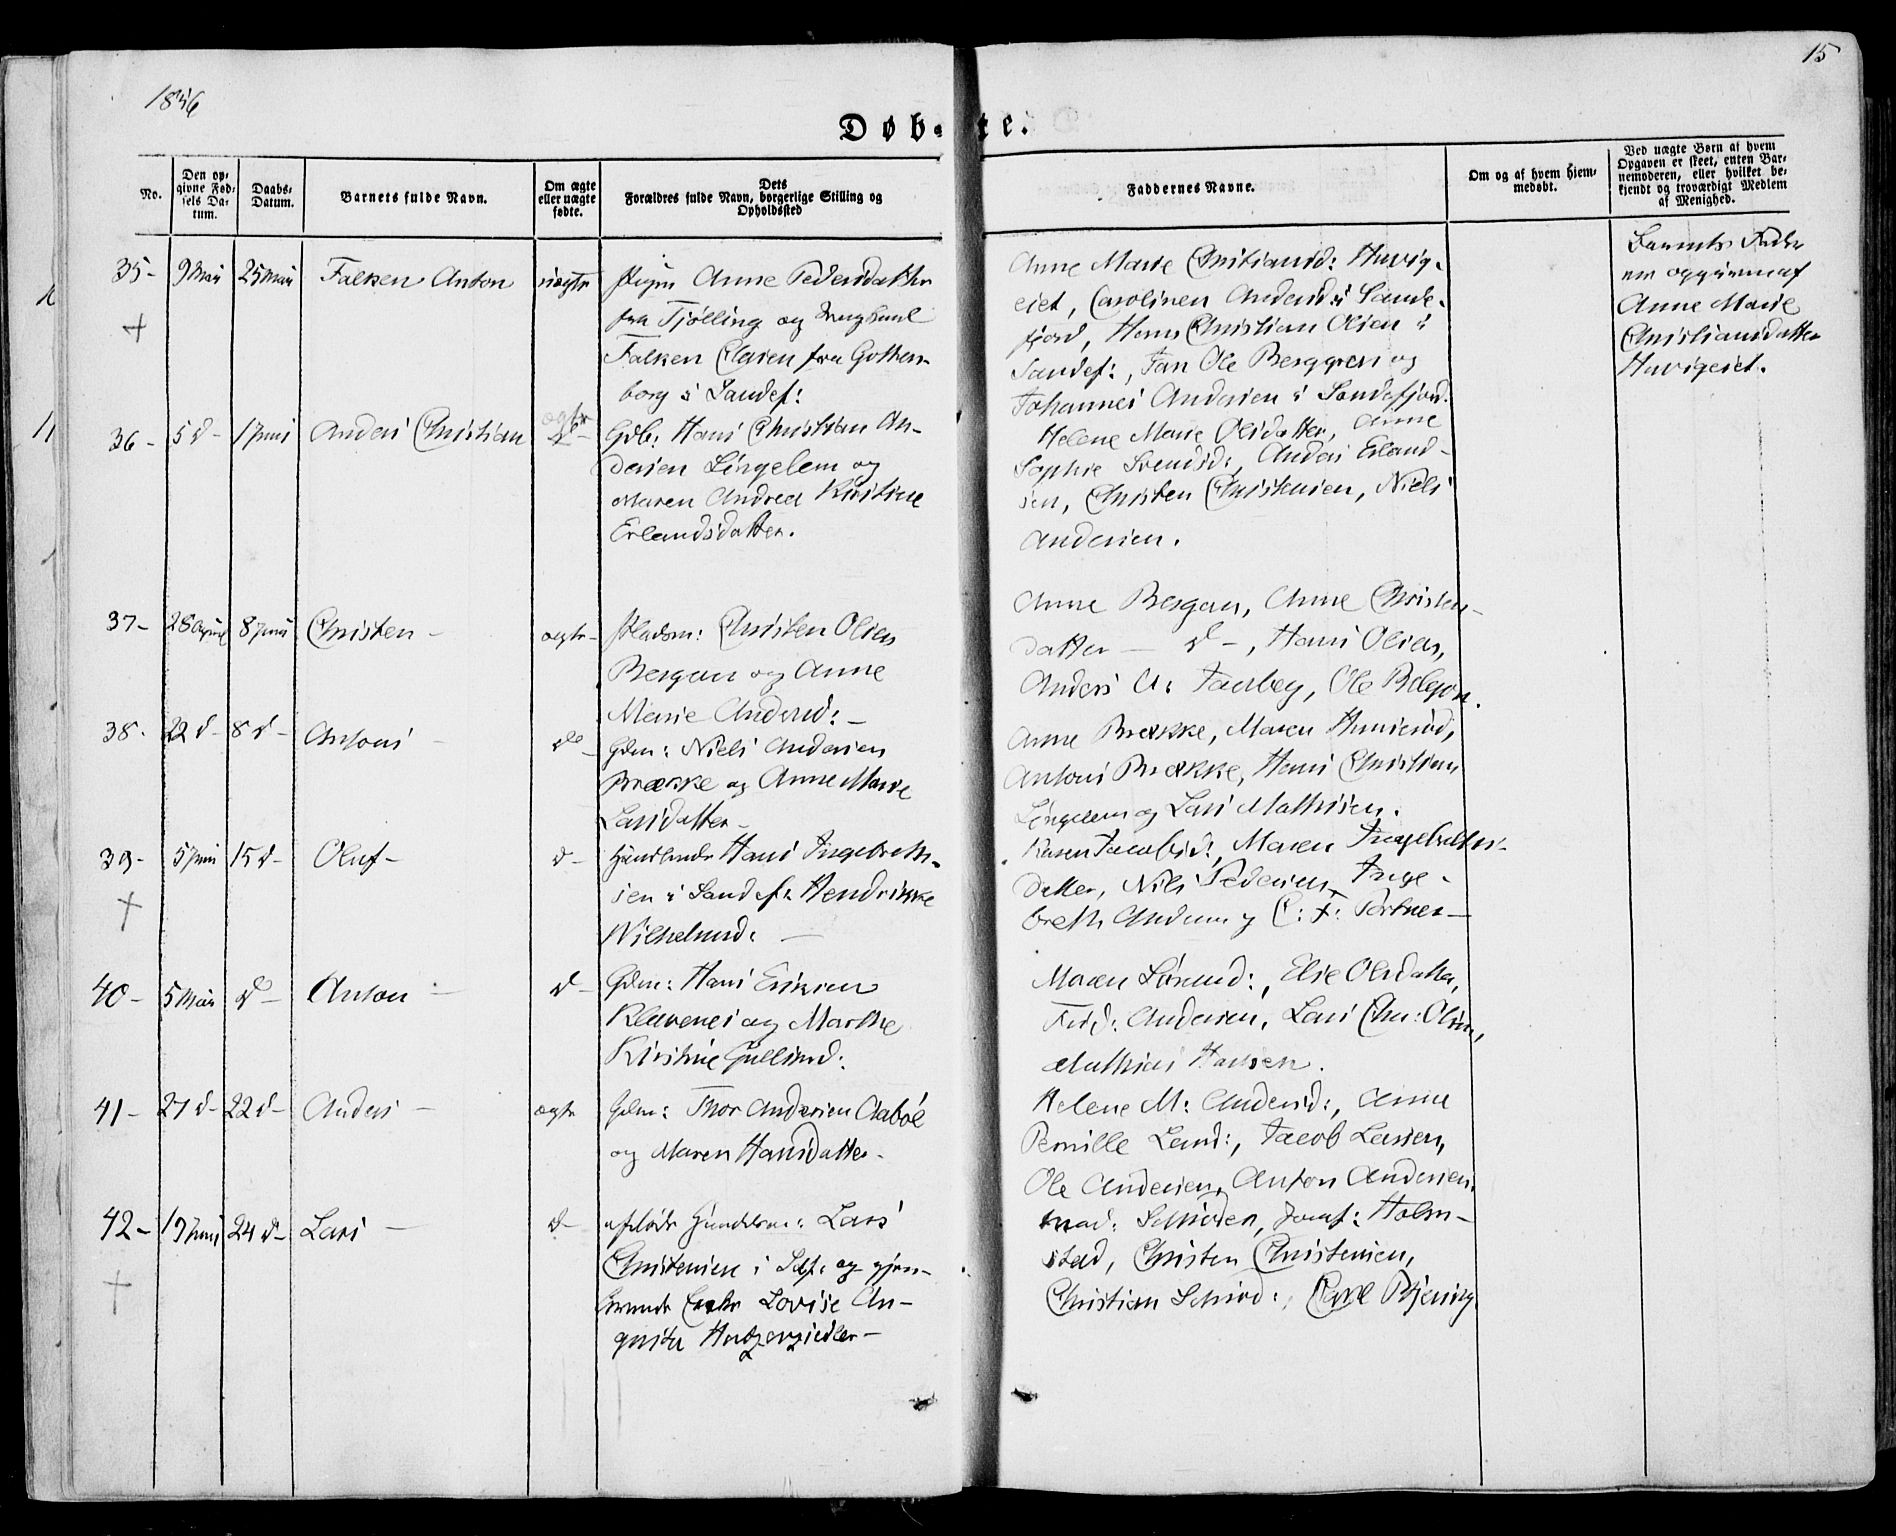 15
1856
Døb-te.
No.
Den op-
givne Fød-
sels Da-
tum.
Daabs-
Datum.
Barnets fulde Navn.
Om ægte
eller uægte
fødte.
Dets
Forældres fulde Navn, borgerlige Stilling og
Opholdssted
Faddernes Navne.
Om og af hvem hjem-
medøbt.
Ved uægte Børn af hvem
Opgaven er skeet, enten Bar-
nemoderen, eller hvilket be-
kjendt og troværdigt Medlem
af Menighed.
35- 9 Mai 25 Mai Falken Anton uægte Pigen Anne Pedersdatter
fra Tjølling og Ungkarl
Falken Clasen fra Gothen-
borg i Sandef:
Anne Marie Christiansd: Huvig-
eiet, Caroline Andersd: i Sande-
fjord, Hans Christian Olsen i
Sandef:, Jan Ole Berggren og
Johannes Andersen i Sandefjord.
Barnets Fader
er opgiven af
Anne Marie
Christiansdatter
Huvigeiet.
36- 5 d- 1 Juni Anders Christian ægte d- Gdb: Hans Christian An-
dersen Lingelem og
Maren Andrea Kirstine
Erlandsdatter.
Helene Marie Olsdatter, Anne
Sophie Svendsd:, Anders Erland-
sen, Christen Christensen, Niels
Andersen.
37- 28 April 8 Juni Christen- ægte- Pladsm: Christen Olsen
Bergan og Anne
Marie Andersd:-
Anne Bergan, Anne Christen-
datter - d-, Hans Olsen,
Anders A: Faerbey, Ole
38- 22 d- 8 d- Antoni- do- Gdm: Niels Andersen
Brække og Anne Marie
Larsdatter-
Anne Brække, Maren
Antoni Brække, Hans Christian
Lingelem og Lars Mathisen.
39- 5 Juni 15 d- Oluf- d- Hans Ingebreth-
sen i Sandef: Hendrikke
Wilhelmsd:-
Karen Jacobsd:, Maren Ingebreths-
datter, Nils Pedersen, Inge-
breth Andersen og C: F: Fortner-
40- 5 Mai d- Anton- d- Gdm: Hans Eriksen
Klavenes og Marthe
Kirstine Gullisd:
Maren Sørensd:, Elise Olsdatter,
Frid: Andersen, Lars Chr: Olsen,
Mathias Hansen.
41- 27 d- 22 d- Anders- ægte Gdm: Thor Andersen Aabøl
og Maren Hansdatter-
Helene M: Andersd:, Anne
Pernille Larsd:, Jacob Larsen,
Ole Andersen, Anton Andersen.
42- 19 Juni 24 d- Lars- d- afdøde Handelsm: Lars
Christensen i Sdf: og gjen-
levende Enke Lovise Au-
gusta Hertzersiedler-
Mad: Schrøder, Jomf: Holm-
stad, Christen Christensen,
Christian Schrød:, Carl Bjering